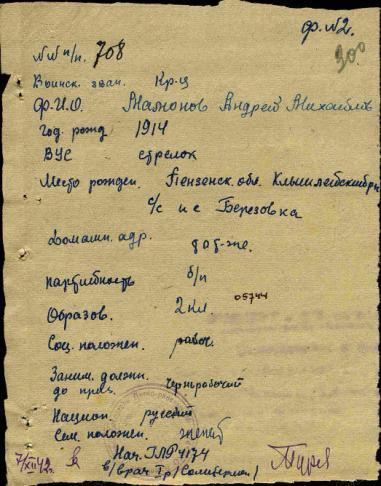 ф. №2.
300
№№ п/п. 708
Воинск. зван. Кр-ц
Ф.И.О. Мамонов Андрей Михайлов
Год. рожд 1914
ВУС стрелок
Место рожден. Пензенск. обл.
с/с и с Березовка
Домашн. адр. там-же.
партийность б/п
05744
Образов. 2 кл
Соц. положен. рабоч.
Заним. должн.
до приз. чернорабочий
Национ. русский
Сем. положен. женат
7/XII 42 г. Нач. ГЛР 4174
в/врач Iр